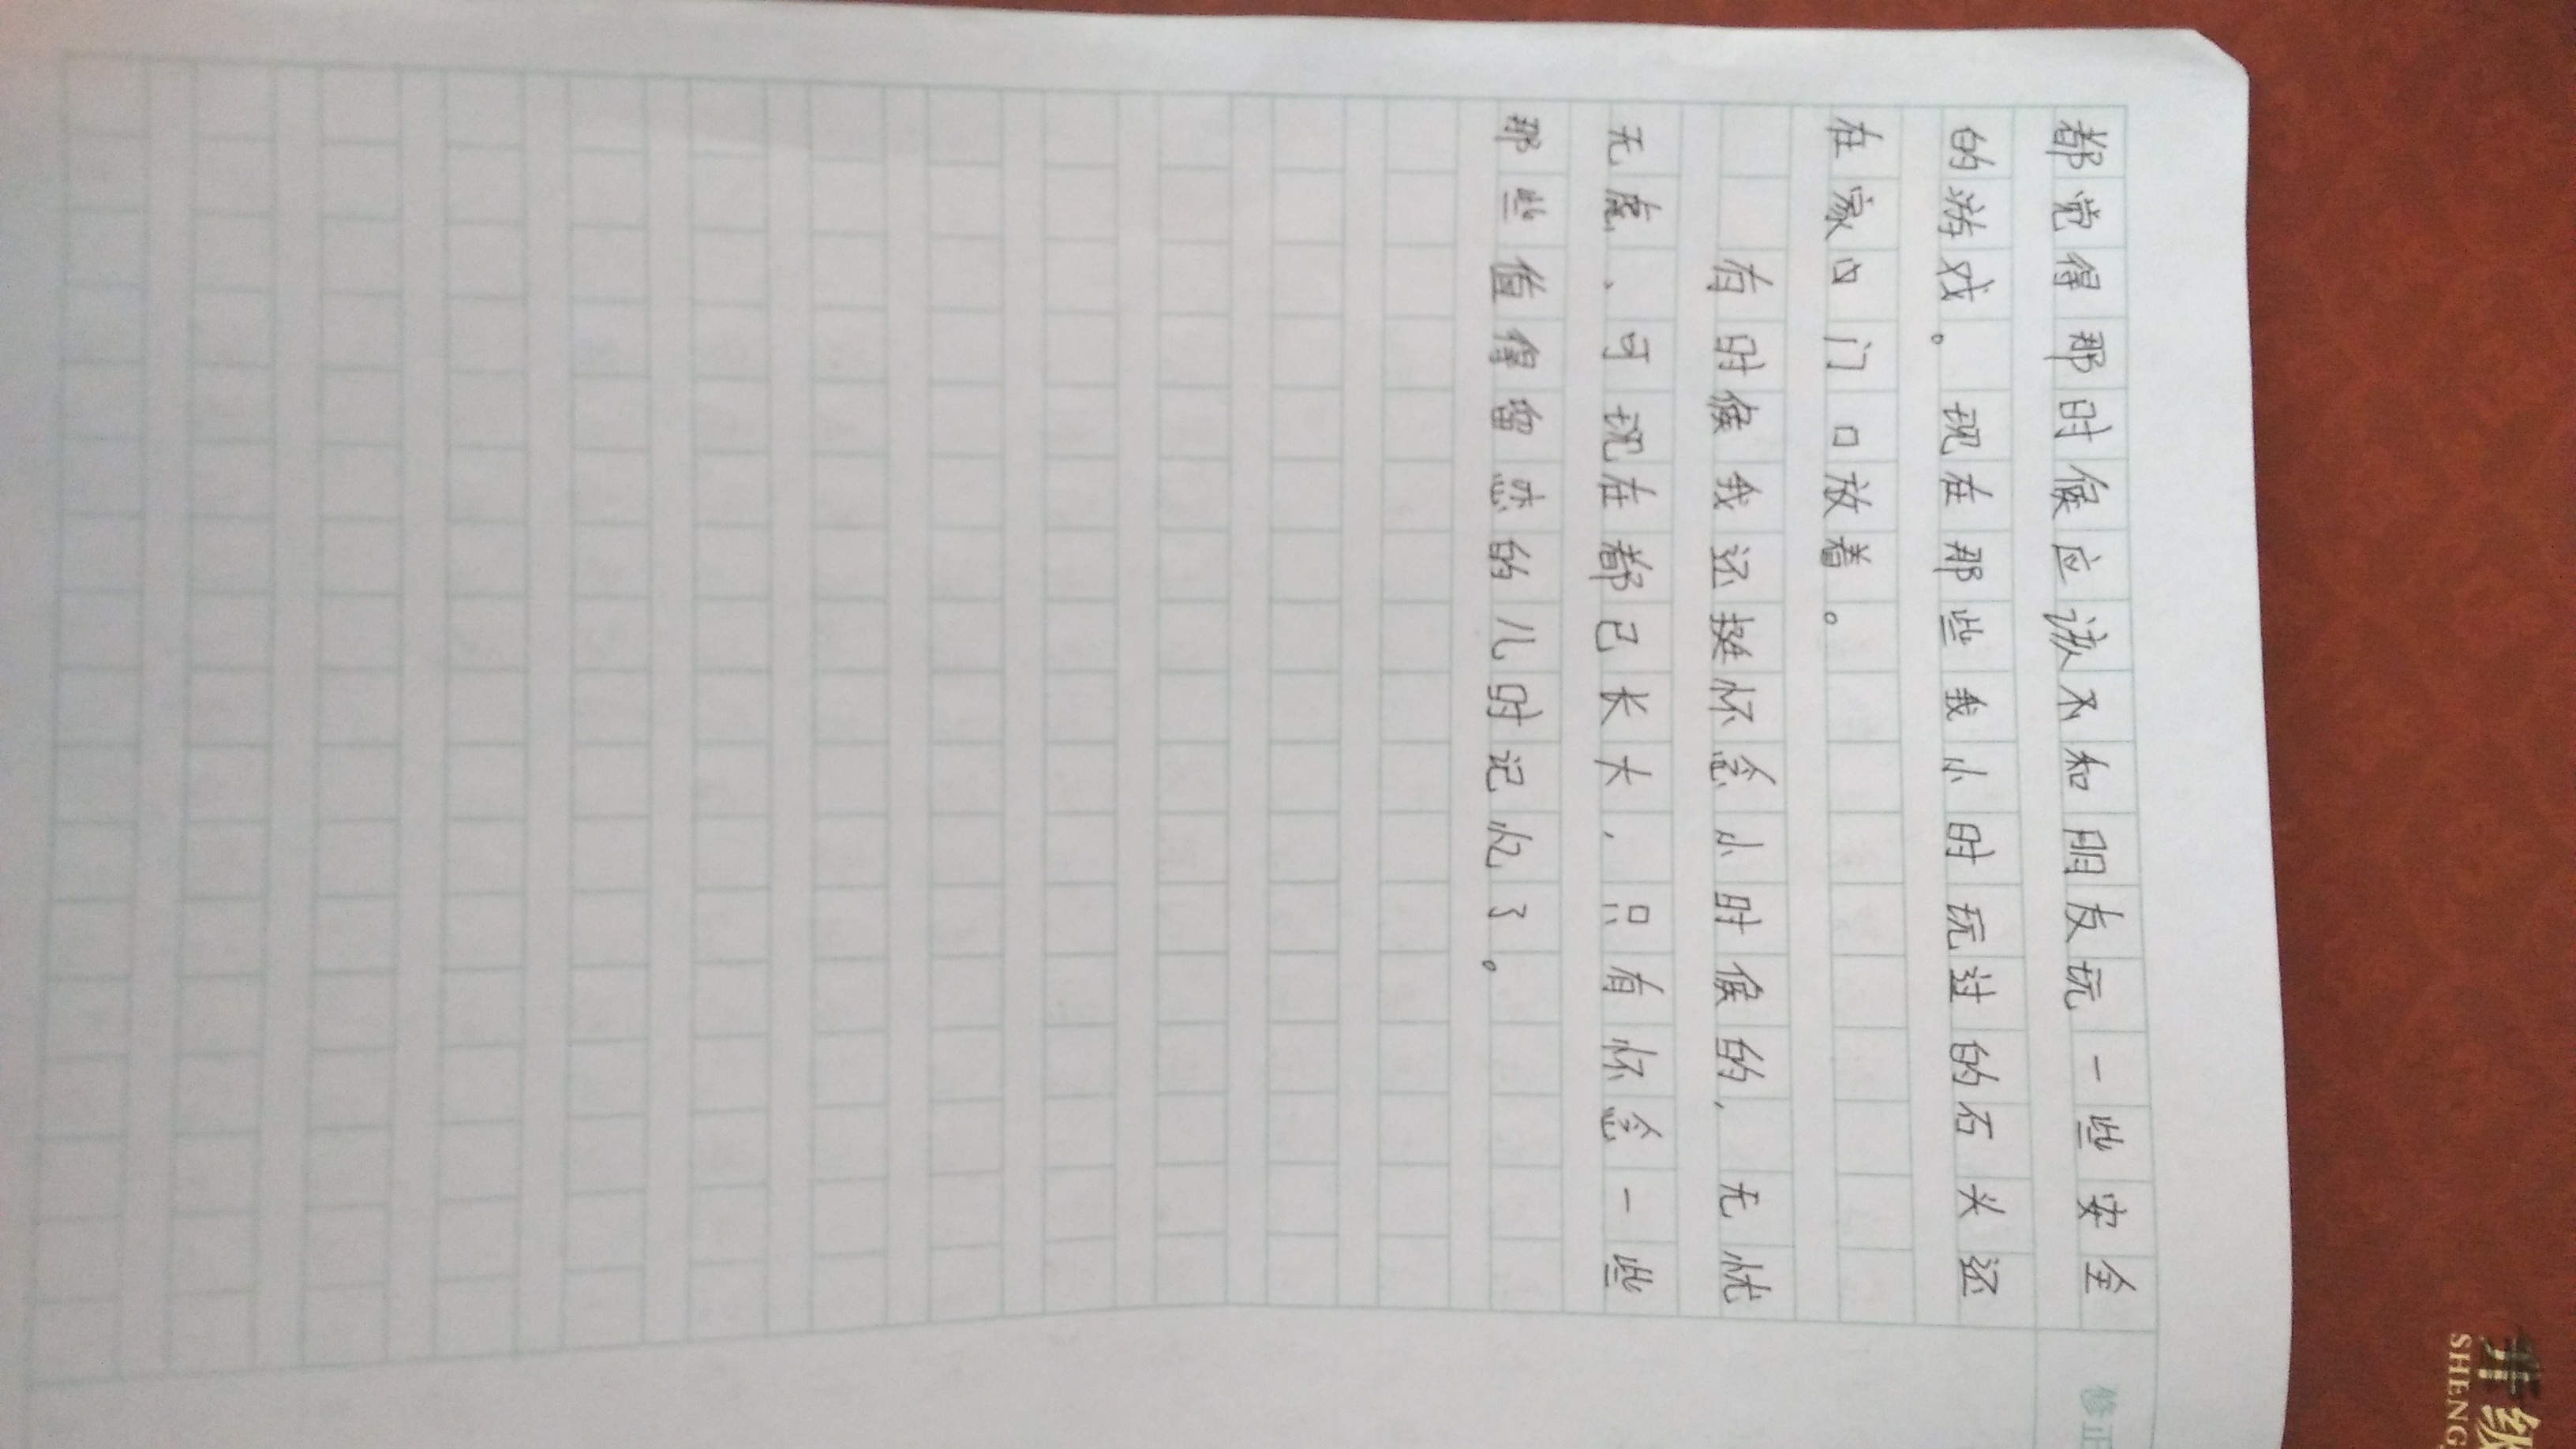 都觉得那时候应该不和朋友玩一些安全
的游戏。现在那些我小时玩过的石头还
在家内门口放着。
有时候我还挺怀念小时候的，无忧
无虑、可现在都已长大，只有怀念一些
那些值得留恋的儿时记忆了。
修正
升级
SHENG